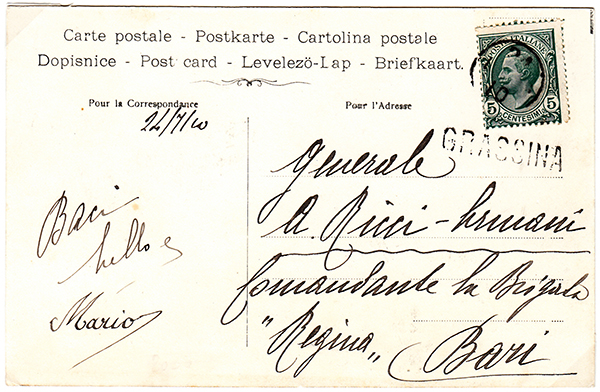 Carte postale - Postkarte - Cartolina postale
Dopisnice - Post card - Levelező-Lap - Briefkaart.
Pour la Correspondance
24/7/10
Pour l'Adresse
POSTE ITALIANE
5 CENTESIMI 5
GRASSINA
Generale
A. Ricci-Armani
Comandante la Brigata
"Regina"
Bari
Baci
Mario